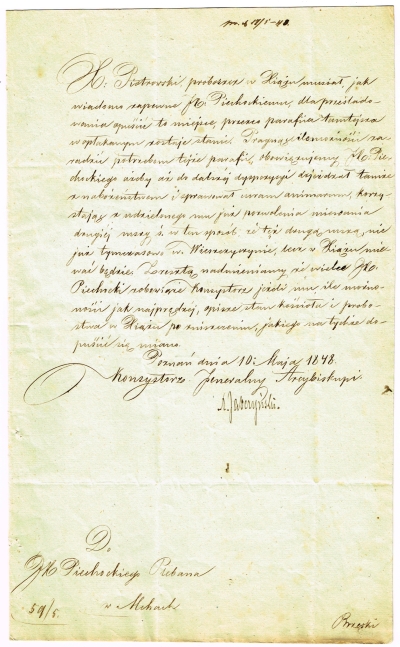 X: Piotrowski, proboszcz w Xiążu musiał, jak
wiadomo zapewne JX. Piechockiemu, dla prześlado-
wania opuścić to miejsce, przezco parafia tamtejsza
w opłakanym zostaje stanie. Pragnąc ile możności za-
radzić potrzebom tejże parafii, obowięzujemy JX. Pie-
chockiego ażeby aż do dalszej dyspozycyi dojeżdżał tamże
z nabożeństwem i sprawował curam animarum, korzy-
stając z udzielonego mu już pozwolenia miewania
drugiej mszy ś. w ten sposób, że też drugą mszą, nie
już tymczasowo w Wieszczyczynie, lecz w Xiążu mie-
wać będzie. Zresztą nadmieniamy, że wielce JX.
Piechocki zobowiąże Konsystorz jeżeli mu, ile możno-
ności jak najprędzej, opisze stan kościoła i probo-
stwa w Xiążu po zniszczeniu, jakiego na tychże do-
puścić się miano.
Poznań dnia 10: Maja 1848.
Konsystorz Jeneralny Arcybiskupi
Do
JX Piechockiego Plebana
w Mchach
59/5.